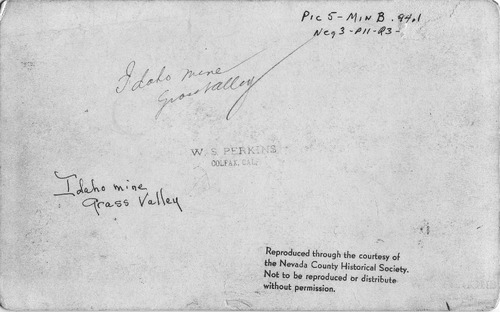 Pic 5 - Min B. 94.1
Neg 3 - P11 - R3 -
Idaho mine
Grass Valley
W. S. PERKINS
COLFAX, CAL.
Idaho mine
Grass Valley
Reproduced through the courtesy of
the Nevada County Historical Society.
Not to be reproduced or distribute
without permission.